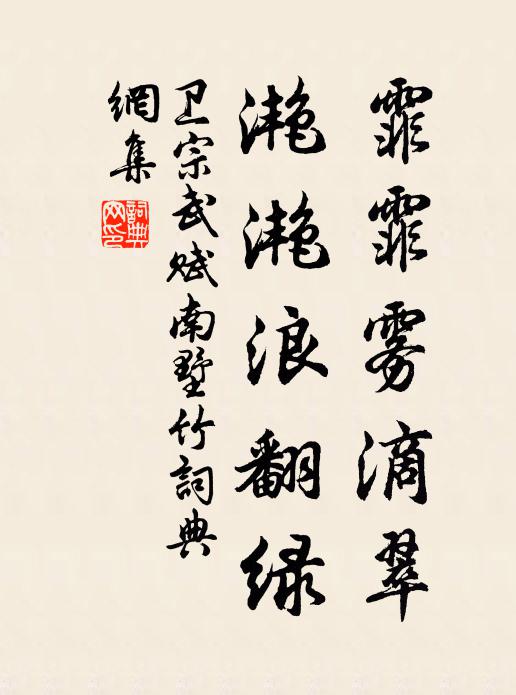 霏霏雾滴翠
滟滟浪翻绿
卫宗武赋南墅竹詞典
網集
詞典
网印